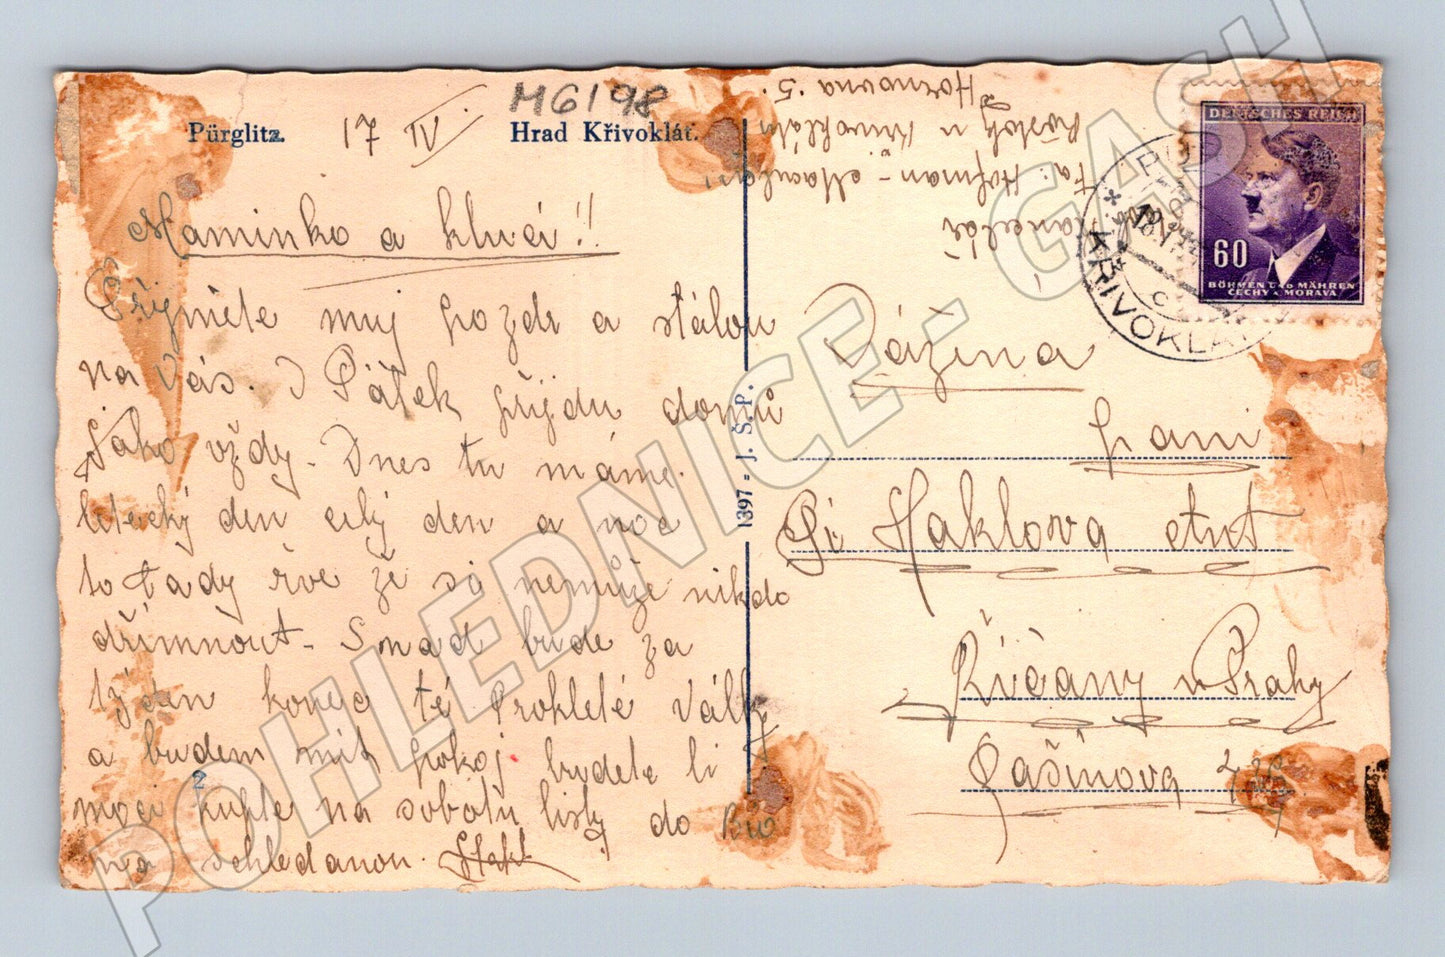 Pürglitz.
17 IV
M6198
Hrad Křivoklát.
Maminko a kluci!!
Přijměte muj pozdr a stálou
na Vás. I Pátek přijdu domů
Jako vždy. Dnes tu máme
letecký den celý den a noc
to tady řve že si nemůže nikdo
dřímnout - Snad bude za
týden konec té Prokleté Války
a budem mít pokoj budete li
moci kupte na sobotu listy do Bio
na shledanou.
2
1397 - J. Š. P.
Kancelář
Fa: Hofman - Maculan
Roztoky u Křivoklátu
Hornovna 5.
DEUTSCHES REICH
60
BÖHMEN UND MÄHREN
ČECHY A MORAVA
KŘIVOKLÁT
Vážená
paní
Pí Haklova
Říčany u Prahy
Rašínova
POHLEDNICE - GASH